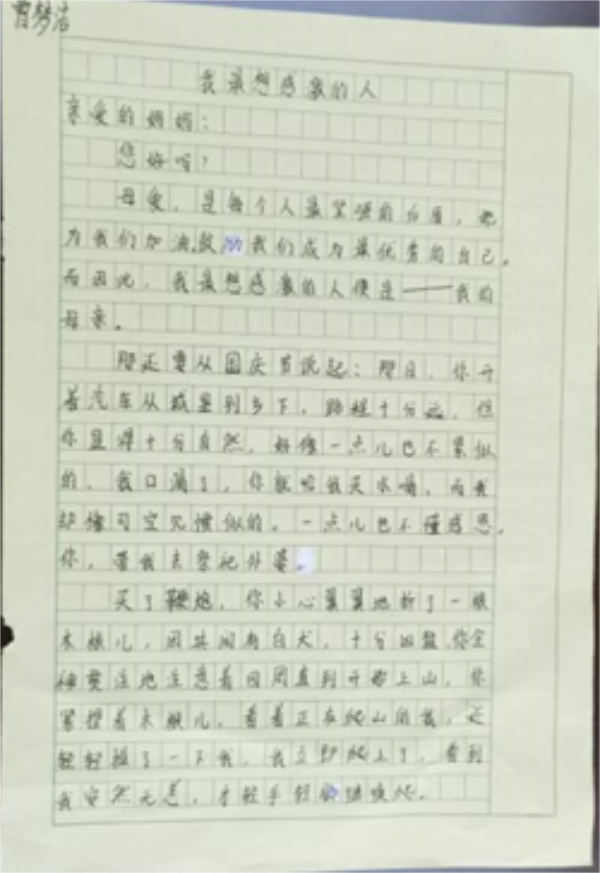 曹梦洁
我最想感激的人
亲爱的妈妈:
您好吗?
母爱,是每个人最坚强的后盾,她
为我们加油,鼓励我们成为最优秀的自己。
而因此,我最想感激的人便是——我的
母亲。
那还要从国庆节说起:那日,你开
着汽车从城里到乡下,路程十分远,但
你显得十分自然,好像一点儿也不累似
的,我口渴了,你就给我买水喝,而我
却像司空见惯似的,一点儿也不懂感恩。
你,带我去祭祀外婆。
买了鞭炮,你小心翼翼地折了一根
木棍儿,因其间有白犬,十分凶猛,你全
神贯注地注意着四周直到开始上山,你
紧握着木棍儿,看着正在爬山的我,还
轻轻拉了一下我,我立即爬上了,看到
我安然无恙,才轻手轻脚继续爬。